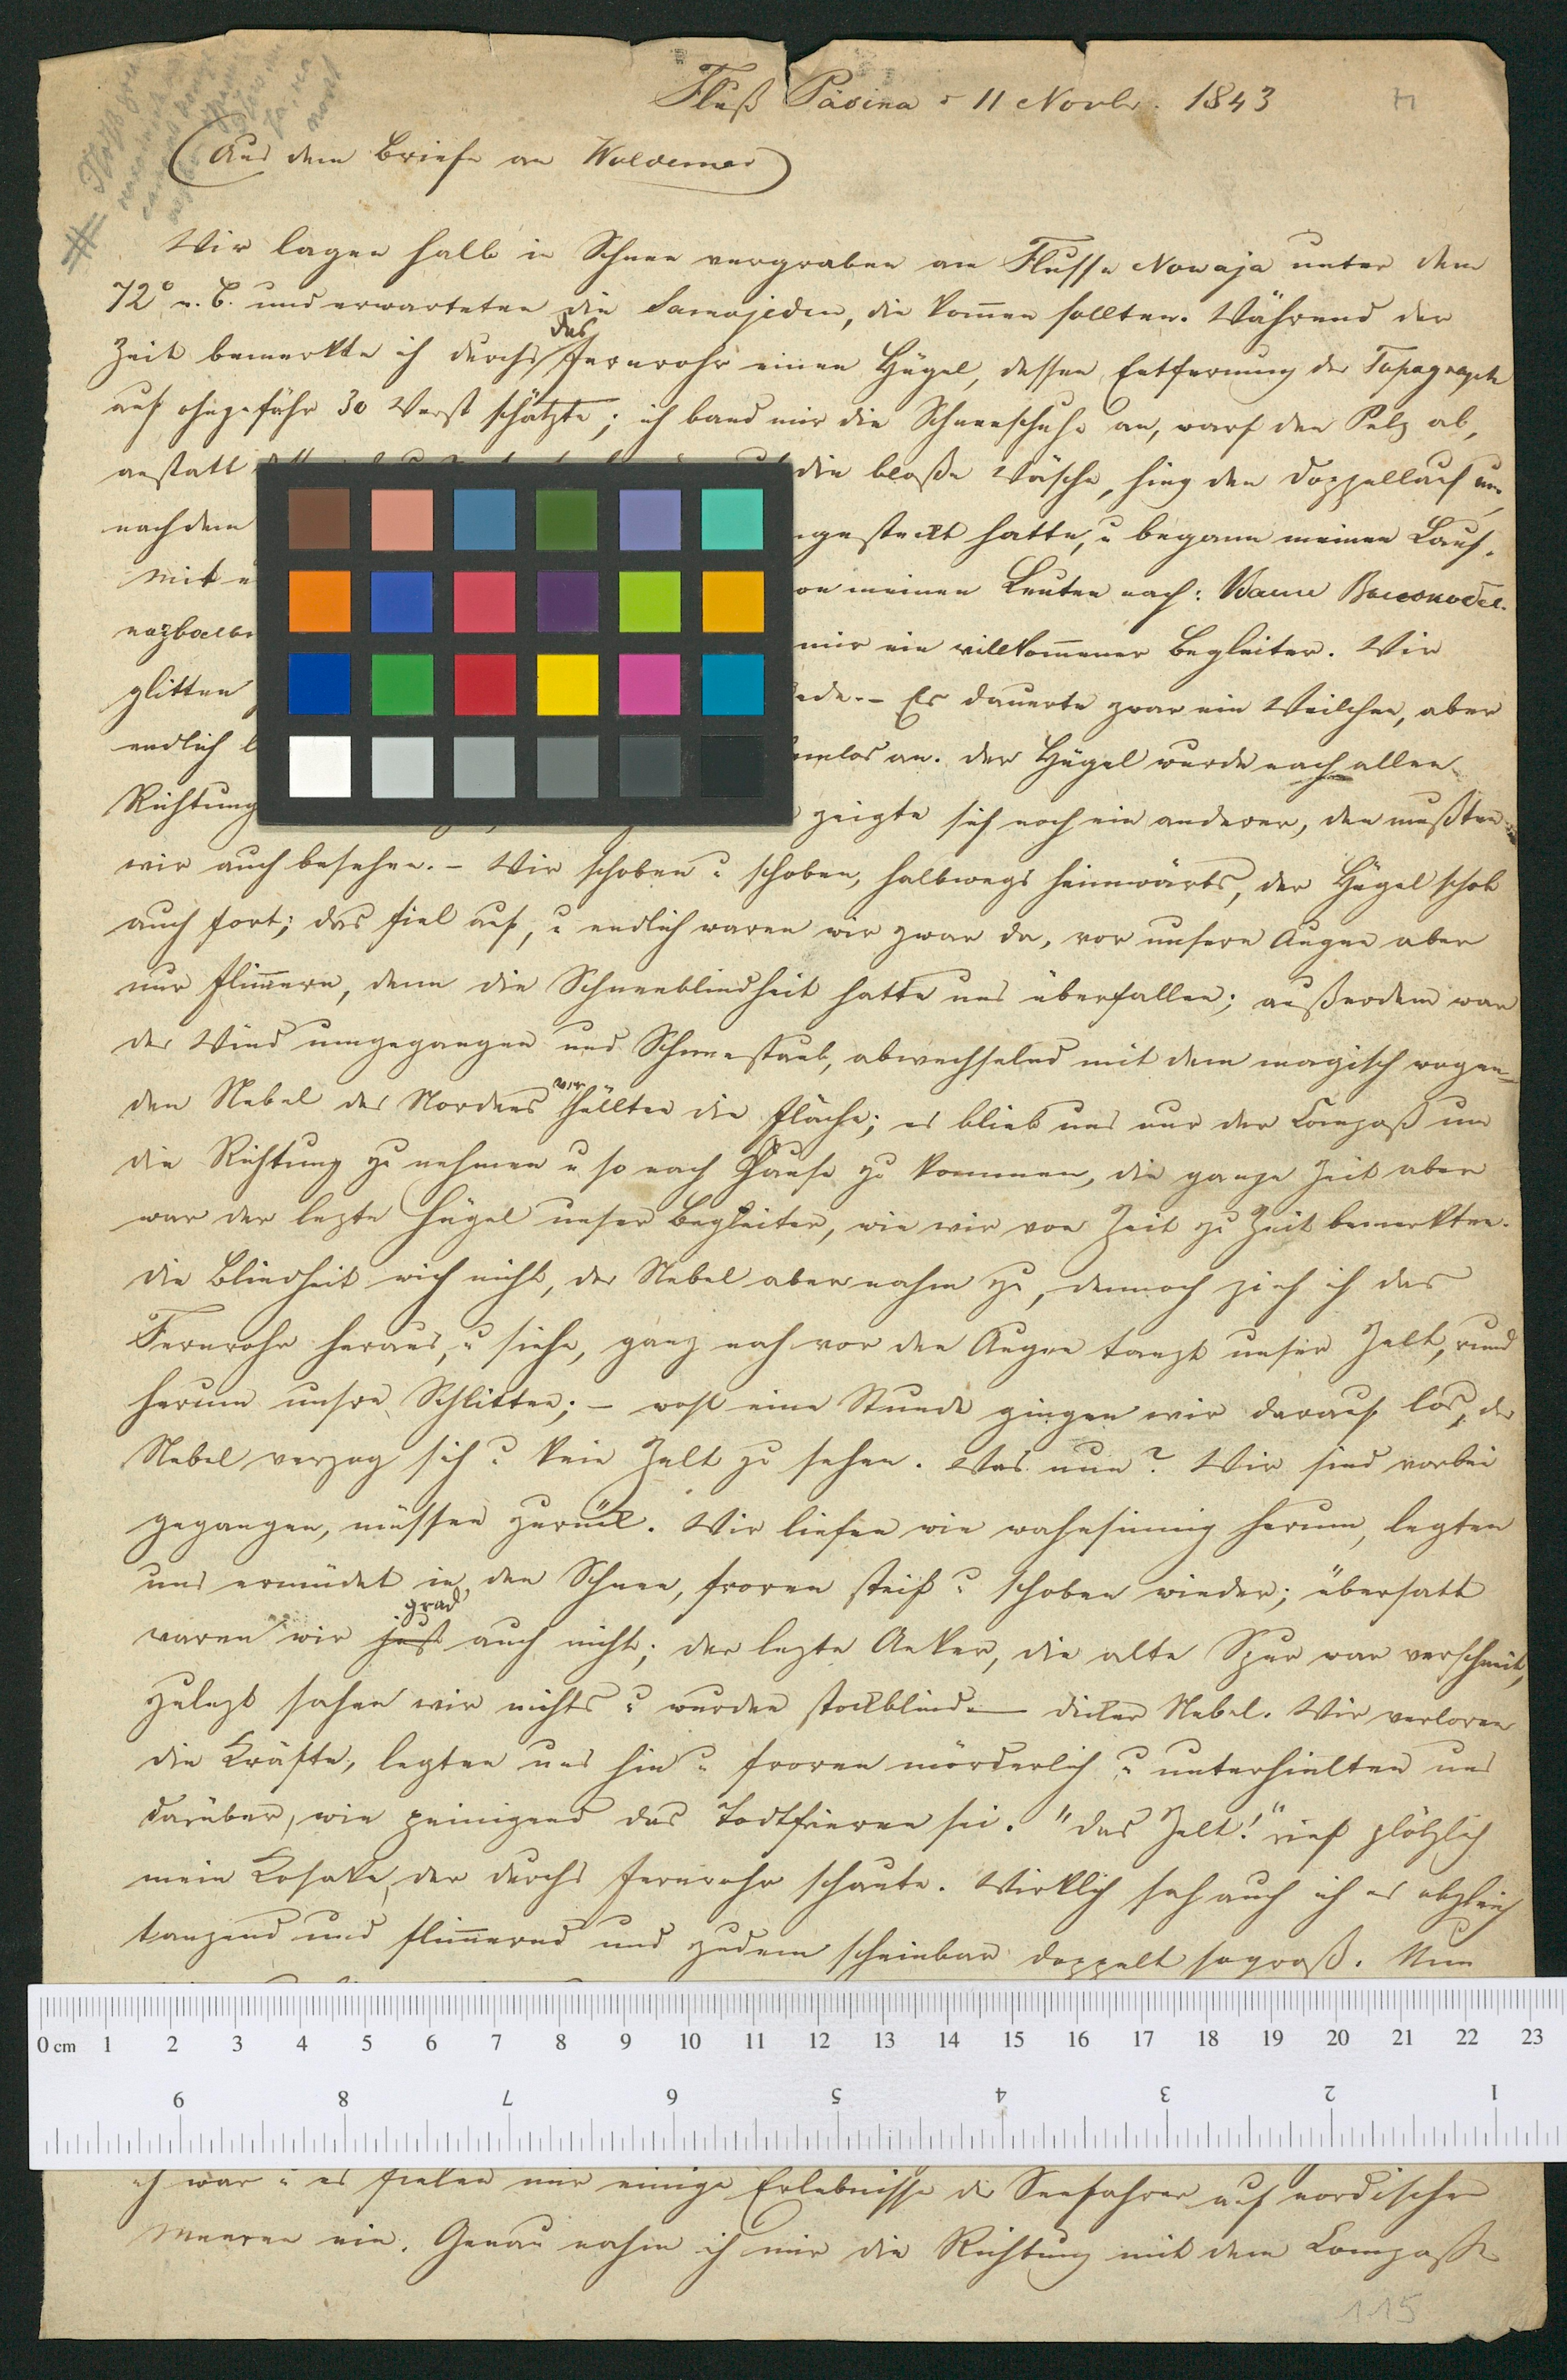 Fluß Päsina d 11 Novbr. 1843
(Aus dem Briefe an Woldemar)
Wir lagen halb in Schnee vergraben am Flusse Nowaja unter dem
72° n. B. und erwarteten die Samojeden, die kom̅en sollten. Während der
das
Zeit bemerkte ich durchs Fernrohr einen Hügel, dessen Entfernung der Topograph
auf ohngefähr 30 Werst schätzte; ich band mir die Schneeschuhe an, warf den Pelz ab,
anstatt die bloße Wäsche, hing den Doppellauf um,
nachdem gesteckt hatte, u begann meinen Lauf.
Mit meinen Leuten nach: Ваше
mir ein willkom̅ener Begleiter. Wir
glitten Es dauerte zwar ein Weilchen, aber
endlich an. Der Hügel wurde nach allen
Richtung zeigte sich noch ein anderer, den mußten
wir auch besehen. – Wir schoben u schoben, halbwegs heimwärts, der Hügel schob
auch fort; das fiel auf, u endlich waren wir zwar da, vor unsern Augen aber
nur flim̅ern, denn die Schneeblindheit hatte uns überfallen; außerdem war
der Wind umgegangen und Schneestaub, abwechselnd mit dem magisch wogen-
ver
den Nebel des Nordens hüllten die Fläche; es blieb uns nur der Compaß um
die Richtung zu nehmen u so nach Hause zu kommen, die ganze Zeit aber
war der lezte Hügel unser Begleiter, wie wir von Zeit zu Zeit bemerkten.
Die Blindheit wich nicht, der Nebel aber nahm zu, dennoch zieh ich das
Fernrohr heraus, u siehe, ganz nah vor den Augen tanzt unser Zelt, rund
herum unsre Schlitten; – wohl eine Stunde gingen wir darauf los, der
Nebel verzog sich u kein Zelt zu sehen. Was nun? Wir sind vorbei
gegangen, müssen zurück. Wir liefen wie wahnsinnig herum, legten
uns ermüdet in den Schnee, froren steif u schoben wieder; übersatt
grad
waren wir just auch nicht; der lezte Anker, die alte Spur war verschneit,
zulezt sahen wir nichts u wurden stockblind – dicker Nebel. Wir verloren
die Kräfte, legten uns hin u froren mörderlich u unterhielten uns
darüber, wie peinigend das Todtfrieren sei. "Das Zelt!" rief plötzlich
mein Kosake, der durchs Fernrohr schaute. Wirklich sah auch ich es obgleich
tanzend und flim̅ernd und zudem scheinbar doppelt so groß. Nun
0 cm 1 2 3 4 5 6 7 8 9 10 11 12 13 14 15 16 17 18 19 20 21 22 23
9 8 7 6 5 4 3 2 1
ich war u es fielen mir einige Erlebnisse der Seefahrer auf nordischen
Meeren ein. Genau nahm ich mir die Richtung mit dem Compaße
115